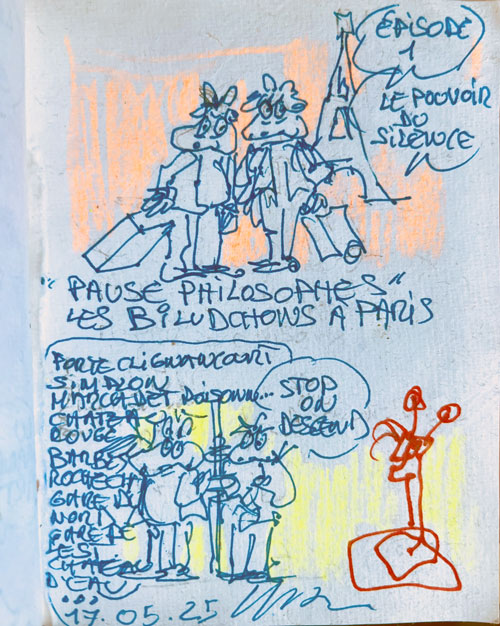 ÉPISODE
1
LE POUVOIR
DU
SILENCE
"PAUSE PHILOSOPHES"
LES BILUDCHONS A PARIS
PORTE CLIGNANCOURT
SIMPLON
MARCADET POISONN...
CHATEA
ROUGE
BARBES
ROCHECH
GARE DU
NORD
GARE DE
L'EST
CHATEAU
D'EAU
...
STOP
ON
DESCEND
17.05.25